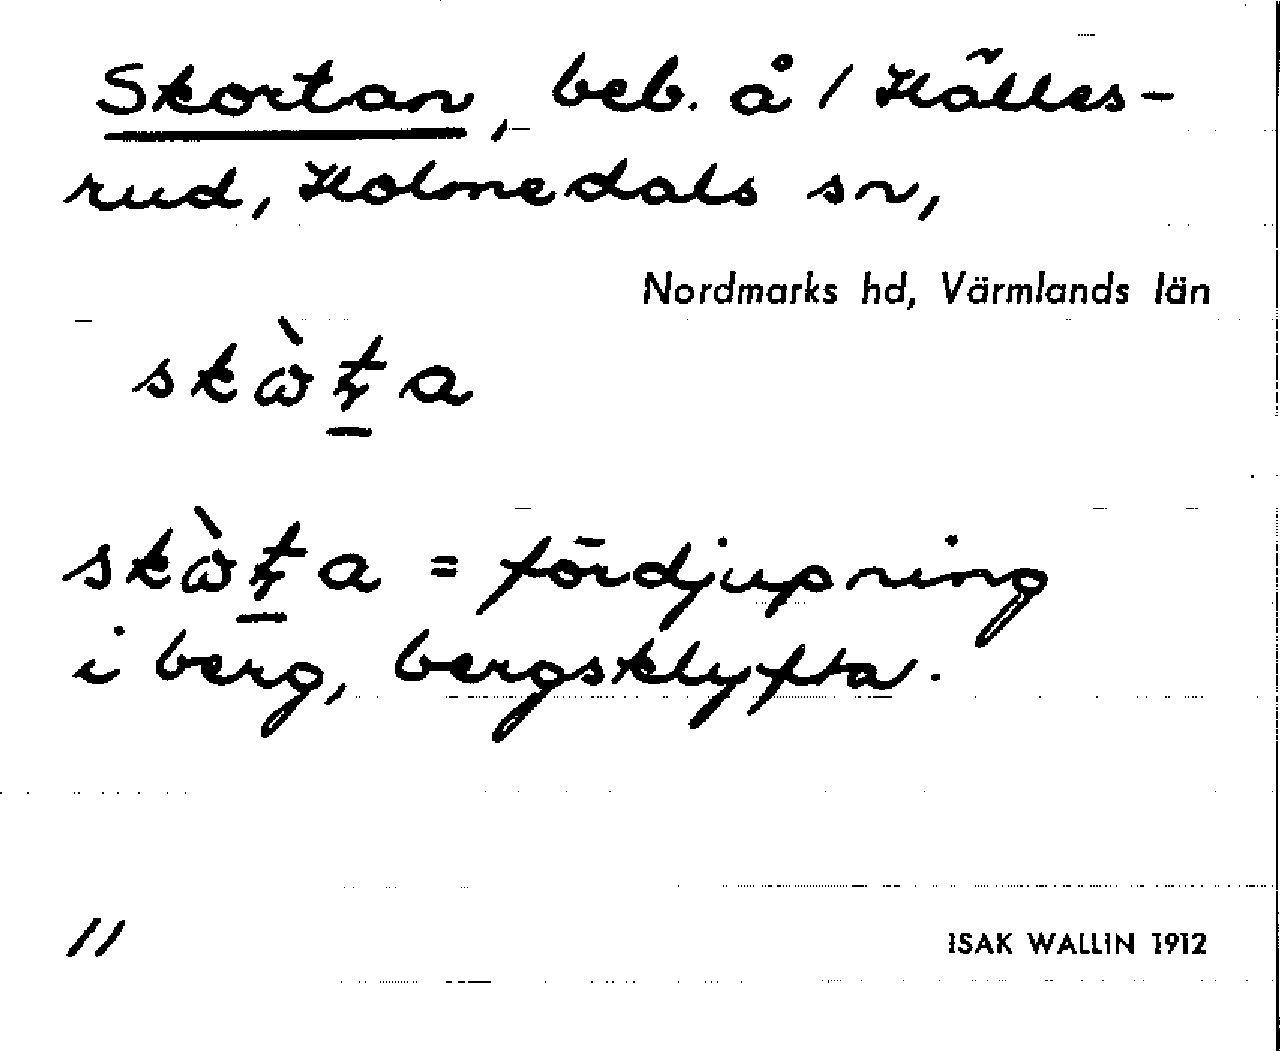 Skortan, beb. å 1 Hälles-
rud, Holmedals sn,
Nordmarks hd, Värmlands län
skὼt̠a
skὼt̠a = fördjupning
i berg, bergsklyfta.
11
ISAK WALLIN 1912